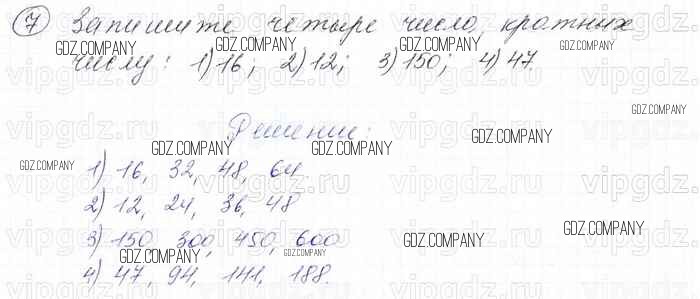 7 Запишите четыре число, кратных
GDZ.COMPANY GDZ.COMPANY GDZ.COMPANY
числу: 1) 16; 2) 12; 3) 150; 4) 47.
vipgdz.ru vipgdz.ru vipgdz.ru vipgdz.ru
GDZ.COMPANY
Решение:
GDZ.COMPANY
GDZ.COMPANY GDZ.COMPANY GDZ.COMPANY
1) 16, 32, 48, 64.
vipgdz.ru vipgdz.ru vipgdz.ru vipgdz.ru
2) 12, 24, 36, 48
GDZ.COMPANY
3) 150 300, 450, 600
GDZ.COMPANY
GDZ.COMPANY GDZ.COMPANY
4) 47, 94, 141, 188.
vipgdz.ru vipgdz.ru vipgdz.ru vipgdz.ru